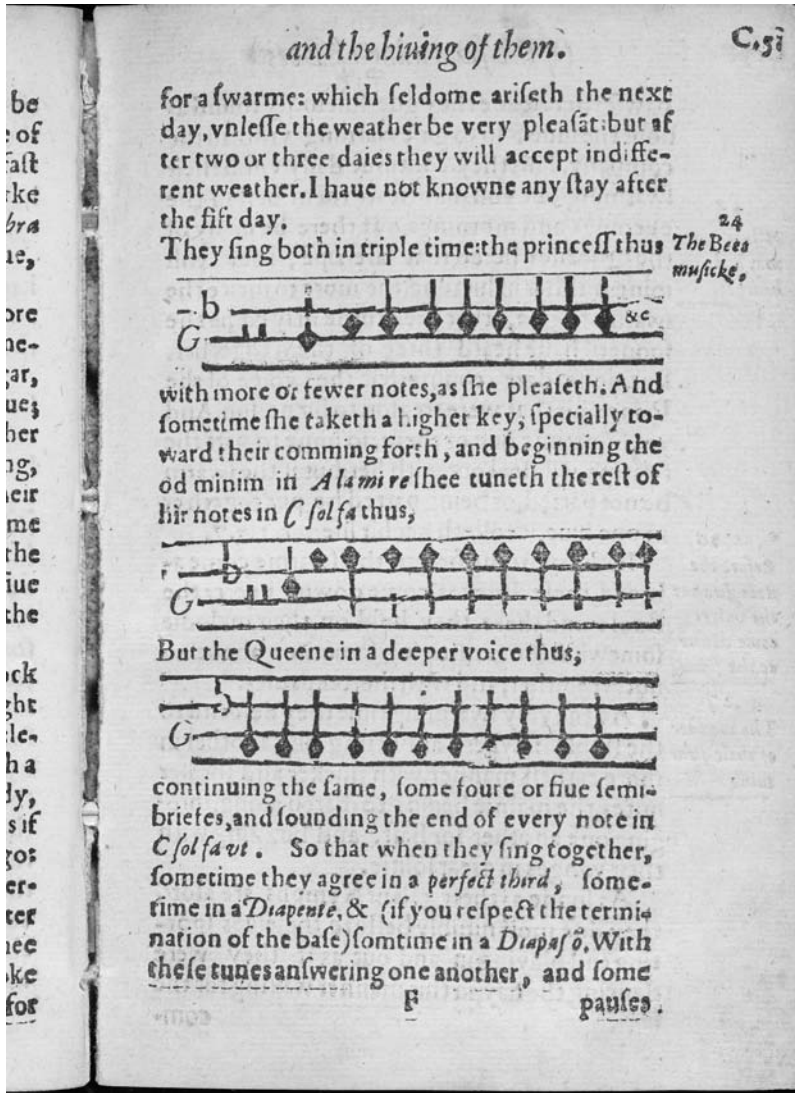 and the hiuing of them.
C.5
for a ſwarme: which ſeldome ariſeth the next
day, vnleſſe the weather be very pleaſāt: but af
ter two or three daies they will accept indiffe-
rent weather. I haue not knowne any ſtay after
the fift day.
They ſing both in triple time: the princeſſ thus
24
The Bees
muſicke,
b
G
&c
with more or fewer notes, as ſhe pleaſeth. And
ſometime ſhe taketh a higher key, ſpecially to-
ward their comming forth, and beginning the
od minim in Alamire ſhee tuneth the reſt of
hir notes in C ſolfa thus,
G
But the Queene in a deeper voice thus,
G
continuing the ſame, ſome foure or fiue ſemi-
briefes, and ſounding the end of every note in
C ſolfa vt. So that when they ſing together,
ſometime they agree in a perfect third, ſome-
time in a Diapente, & (if you reſpect the termi-
nation of the baſe) ſomtime in a Diapaſō. With
theſe tunes anſwering one another, and ſome
F
pauſes.
be
of
faſt
rke
bra
ue,
ore
ne-
ar,
ue;
her
ng,
heir
me
the
fiue
the
ock
ght
le-
h a
ly,
s if
go:
er-
ter
nee
oke
for